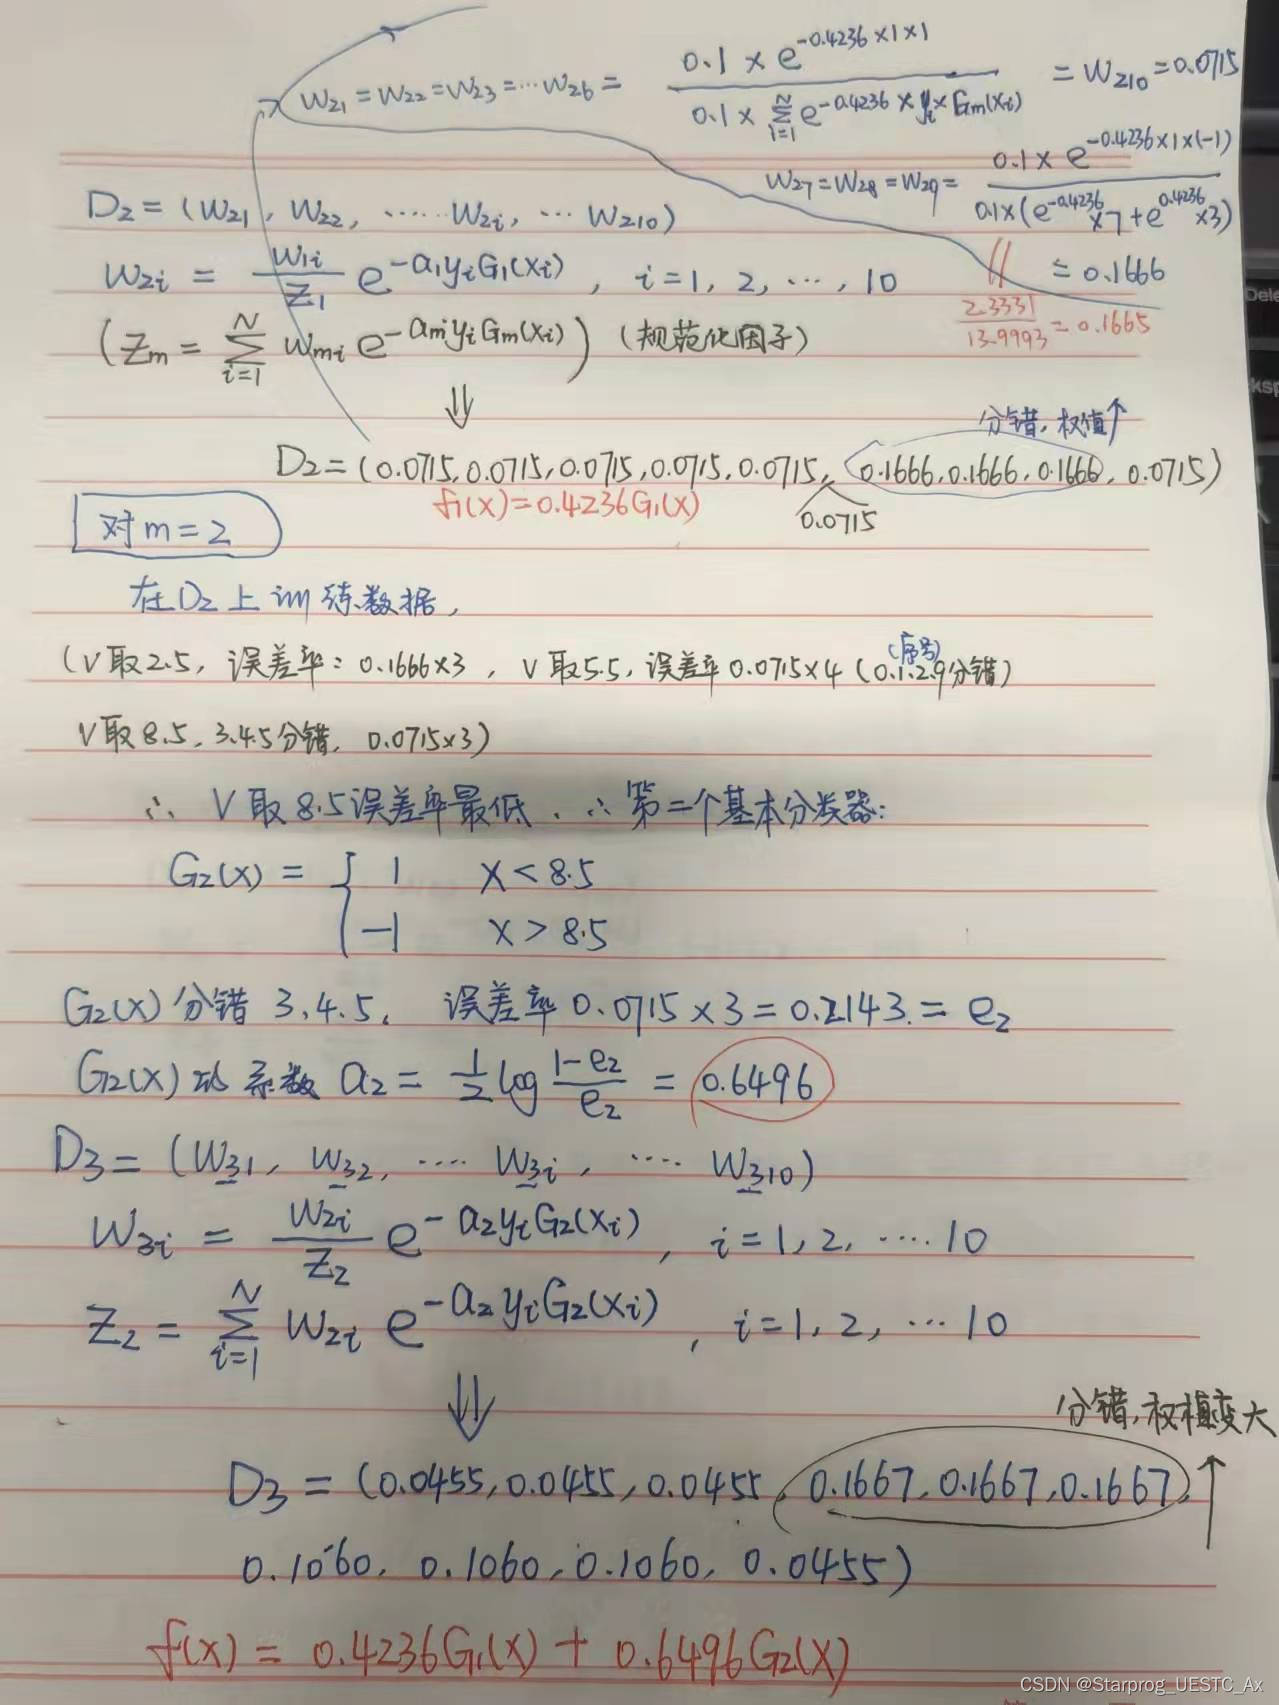 W₂₁ = W₂₂ = W₂₃ = … W₂₆ = (0.1 × e^(-0.4236×1×1)) / (0.1 × Σ_{i=1}^{N} e^(-0.4236 × yᵢ × Gm(xᵢ))) = W₂₁₀ = 0.0715
W₂₇ = W₂₈ = W₂₉ = (0.1 × e^(-0.4236×1×(-1))) / (0.1×(e^(-0.4236) ×7 + e^(0.4236) ×3))
= 0.1666
2.3331 / 13.9993 = 0.1665
D₂ = (W₂₁, W₂₂, …… W₂ᵢ, … W₂₁₀)
W₂ᵢ = (W₁ᵢ / Z₁) e^(-a₁yᵢG₁(xᵢ)), i = 1, 2, …, 10
(Zm = Σ_{i=1}^{N} Wmᵢ e^(-am yᵢ Gm(xᵢ))) (规范化因子)
⇓
分错,权值↑
D₂ = (0.0715, 0.0715, 0.0715, 0.0715, 0.0715, 0.1666, 0.1666, 0.1666, 0.0715)
f₁(x) = 0.4236G₁(x)
0.0715
对m = 2
在D₂上训练数据,
(序号)
(V取2.5, 误差率: 0.1666×3, V取5.5, 误差率0.0715×4 (0.1.2.9分错)
V取8.5, 3.4.5分错, 0.0715×3)
∴ V取8.5误差率最低. ∴第二个基本分类器:
G₂(x) = { 1 x < 8.5
-1 x > 8.5
G₂(x)分错 3.4.5. 误差率0.0715×3 = 0.2143. = e₂
G₂(x)的系数 a₂ = ½ log (1-e₂)/e₂ = 0.6496
D₃ = (W₃₁, W₃₂, …. W₃ᵢ, …. W₃₁₀)
W₃ᵢ = (W₂ᵢ / Z₂) e^(-a₂yᵢG₂(xᵢ)), i = 1, 2, …. 10
Z₂ = Σ_{i=1}^{N} W₂ᵢ e^(-a₂yᵢG₂(xᵢ)), i = 1, 2, … 10
⇓
分错,权值变大
↑
D₃ = (0.0455, 0.0455, 0.0455, 0.1667, 0.1667, 0.1667,
0.1060, 0.1060, 0.1060, 0.0455)
f(x) = 0.4236G₁(x) + 0.6496G₂(x)
CSDN @Starprog_UESTC_Ax
Dele